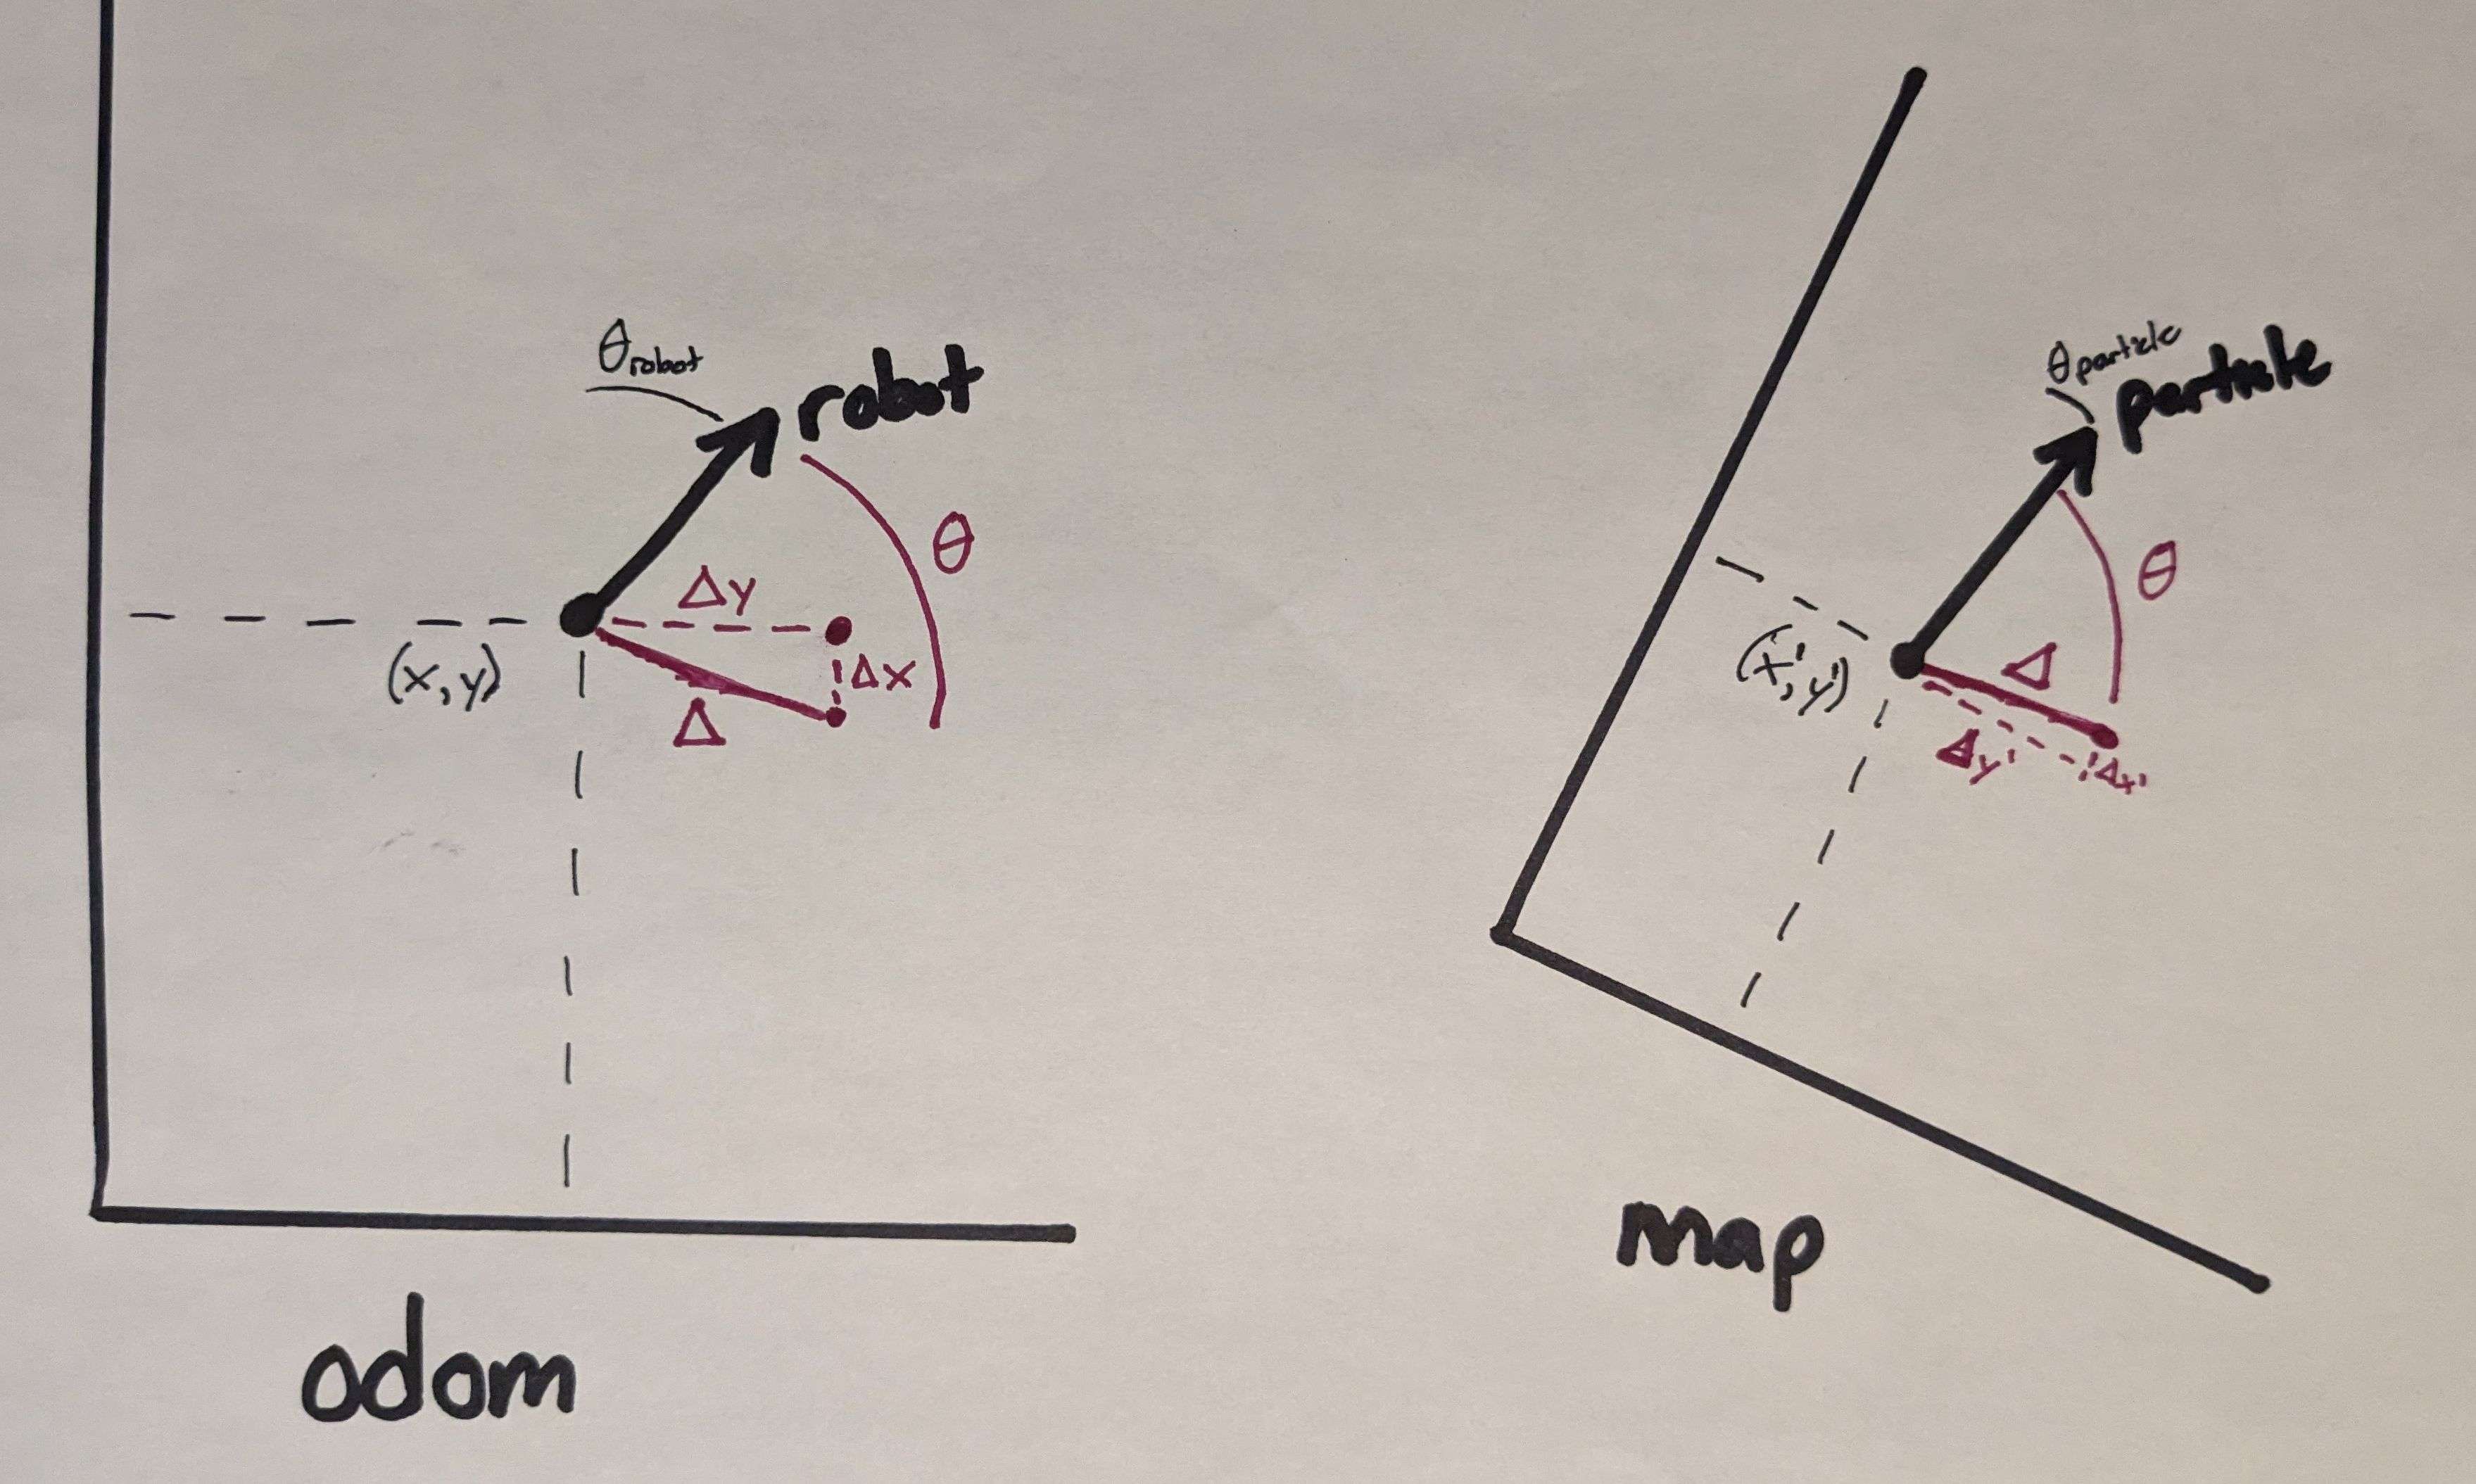 θrobot
robot
θ
Δy
(x,y)
Δx
Δ
odom
θparticle
particle
θ
(x',y')
Δ
Δy'
Δx'
map